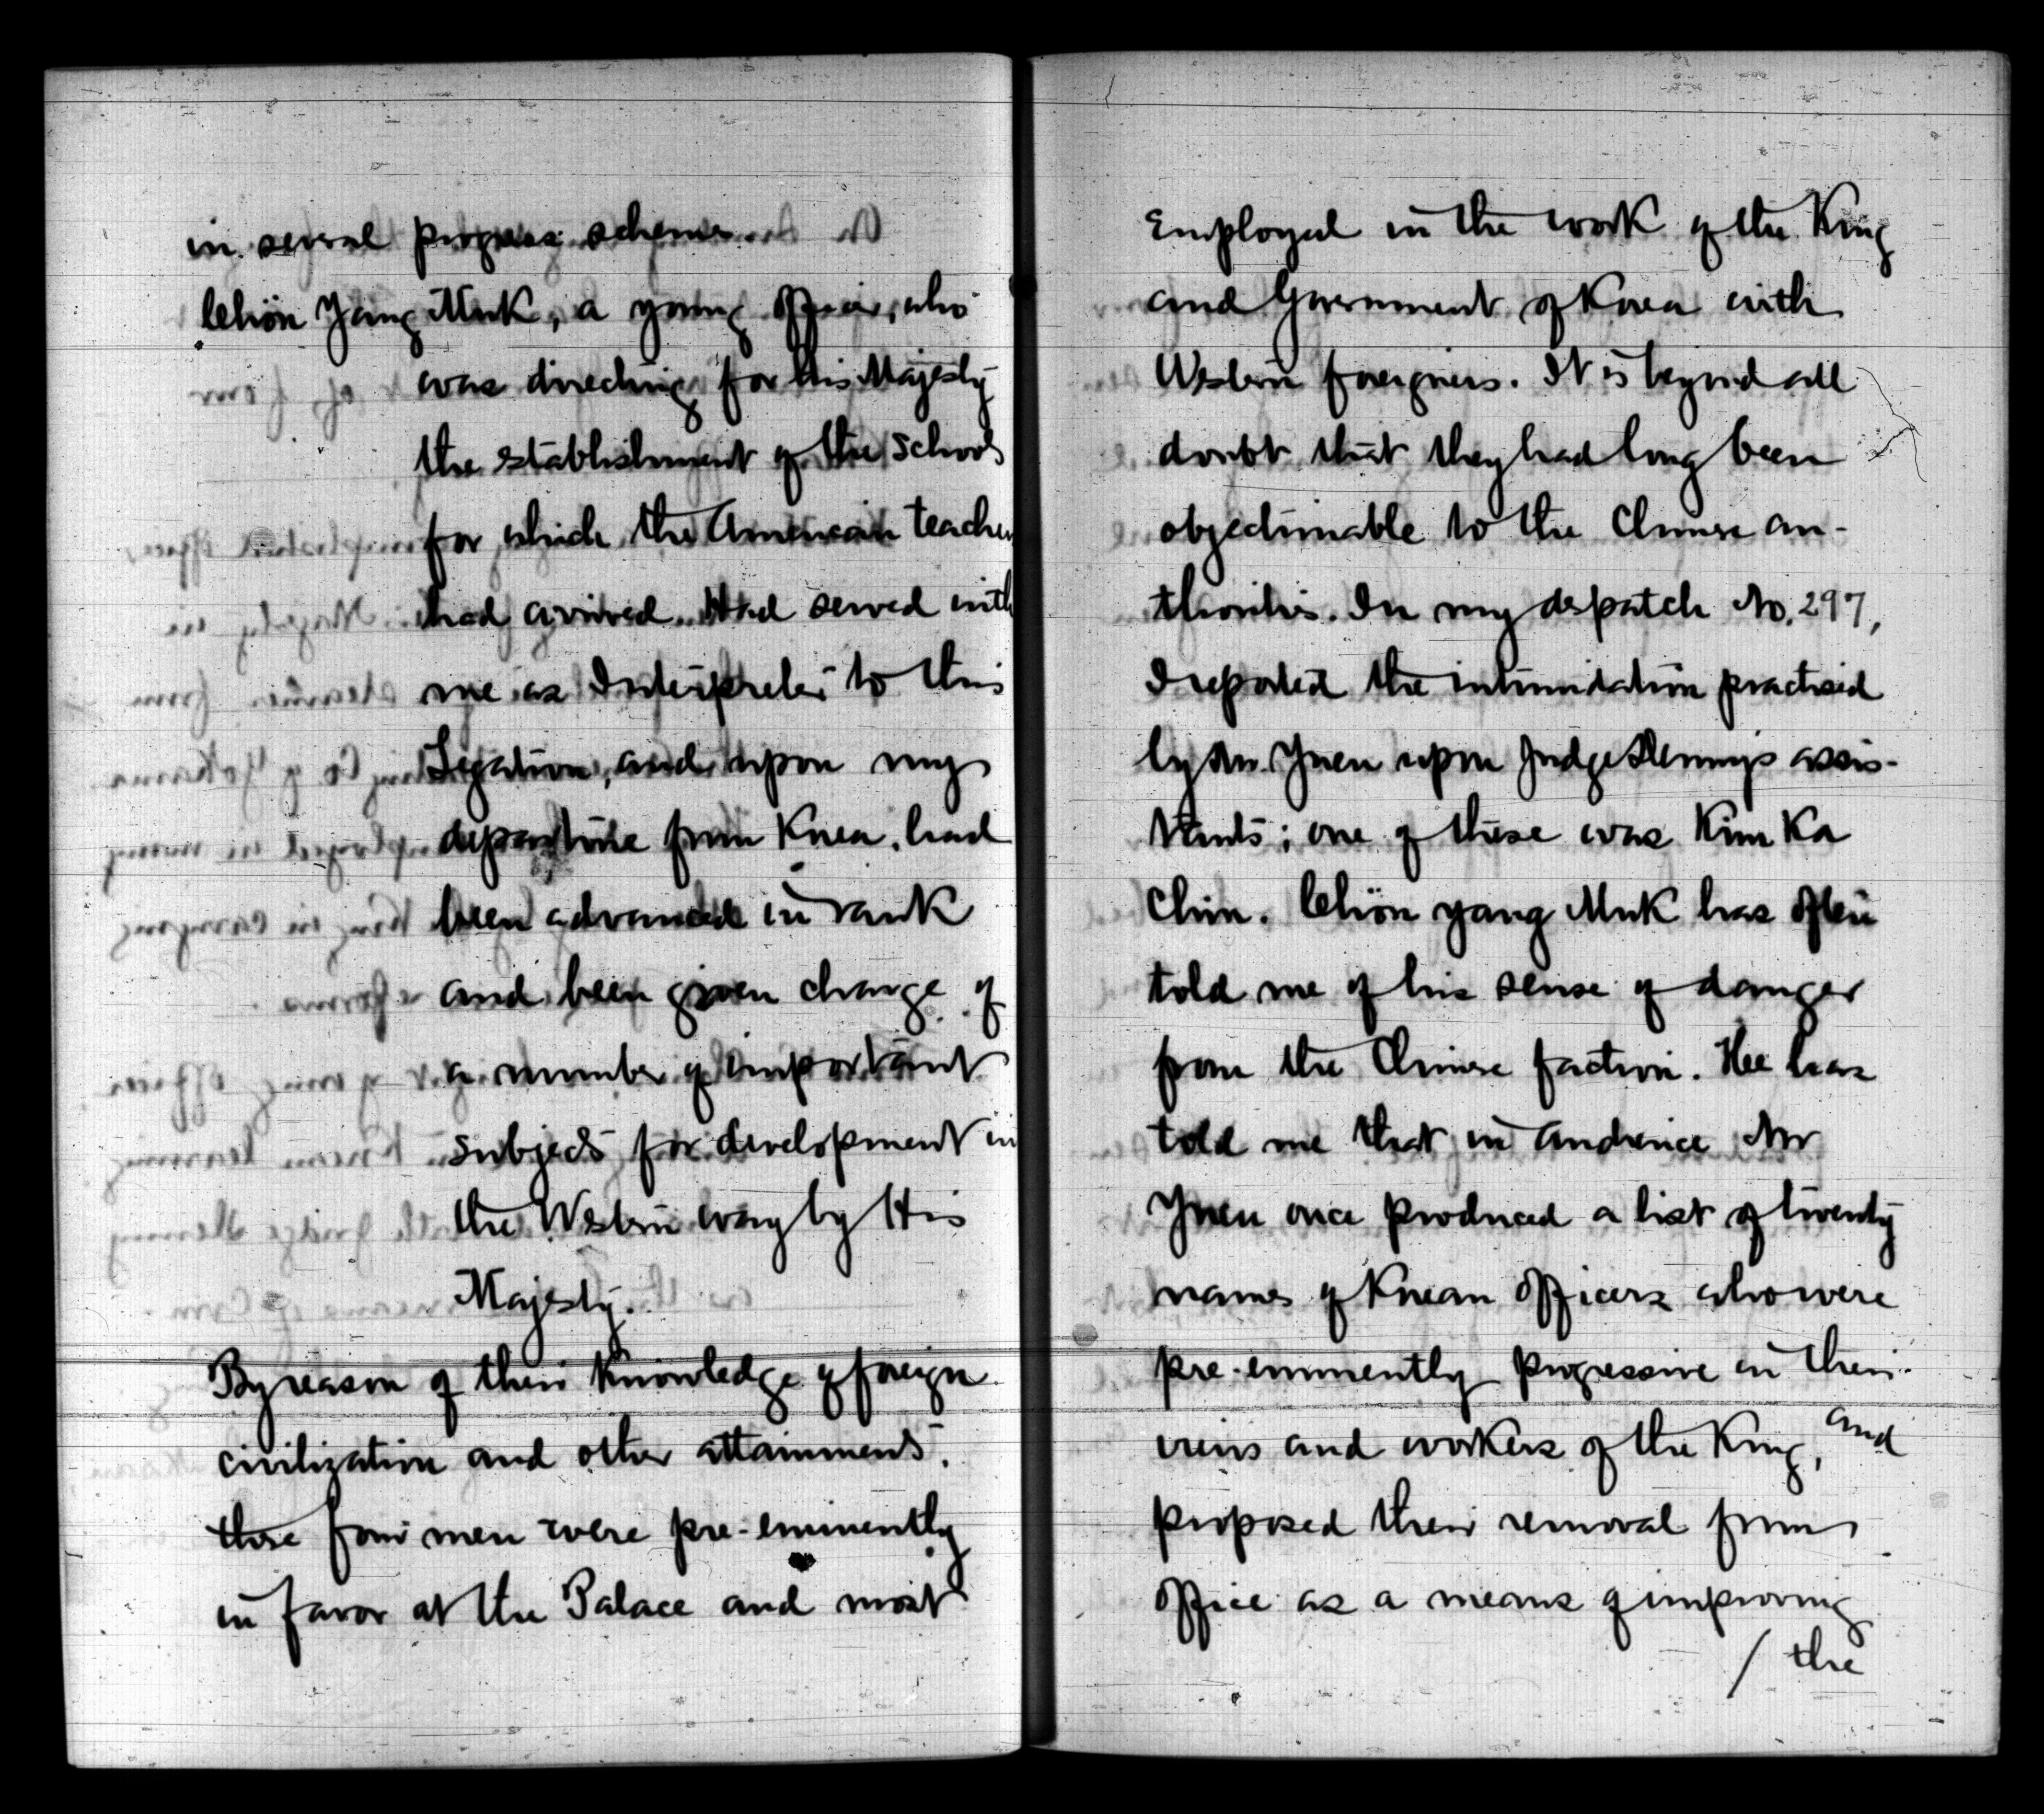 in several progress schemes.
Chön Yang Muk, a young officer, who
was directing for His Majesty
the establishment of the schools
for which the American teachers
had arrived. Had served with
me as Interpreter to this
Legation, and upon my
departure from Korea, had
been advanced in rank
and been given charge of
a number of important
subjects for development in
the Western way by His
Majesty.
By reason of their knowledge of foreign
civilization and other attainments,
these four men were pre-eminently
in favor at the Palace and most
employed in the work of the King
and Government of Korea with
Western foreigners. It is beyond all
doubt that they had long been
objectionable to the Chinese au-
thorities. In my despatch No. 297,
I reported the intimidation practised
by Mr. Yuen upon Judge Denny's assis-
tants; one of these was Kim Ka
Chin. Chön Yang Muk has often
told me of his sense of danger
from the Chinese faction. He has
told me that in audience Mr
Yuen once produced a list of twenty
names of Korean officers who were
pre-eminently progressive in their
views and workers of the King, and
proposed their removal from
office as a means of improving
/ the